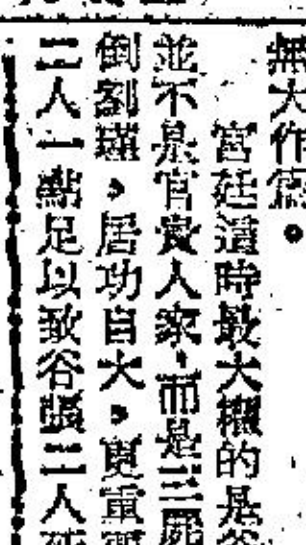 無大作為。
宮廷這時最大權的是谷
並不是官貴人家，而是三
倒劉瑾，居功自大，更重要
二人一點足以致谷張二人死